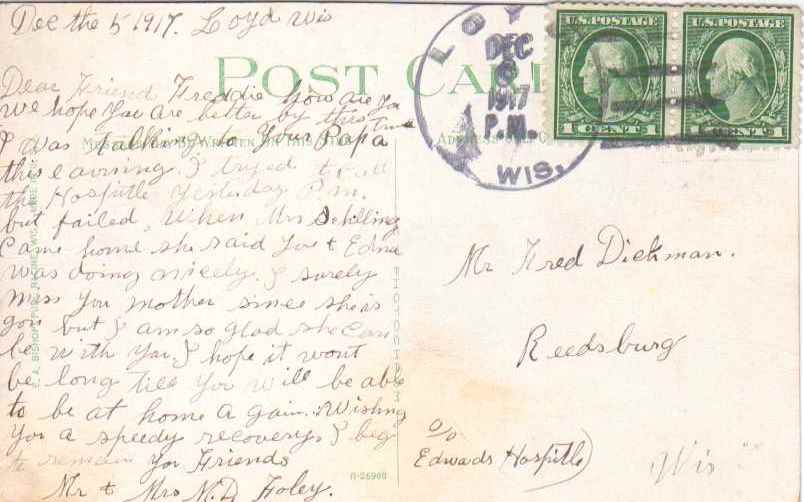 Dec the 5 1917. Loyd Wis
POST CARD
Dear Friend Freddie How are You
We hope You are better by this time
I was talking to Your Papa
this eavning. I tryed to call
the Hospitle Yesterday P.m.
but failed, When Mrs Schilling
Came home she said You & Edna
was doing nicely. I surely
miss You mother since she is
gon but I am so glad she Can
be with You. I hope it wont
be long till You will be able
to be at home a gain. Wishing
You a speedy recovery. I beg
to remain Your Friends
Mr & Mrs M.D. Foley.
PHOTOCHROM
R-26900
LOYD
DEC
1917
P.M.
WIS.
U.S. POSTAGE
1 CENTS 1
U.S. POSTAGE
1 CENTS 1
Mr Fred Dickman.
Reedsburg
c/o
Edwads Hospitle)
Wis